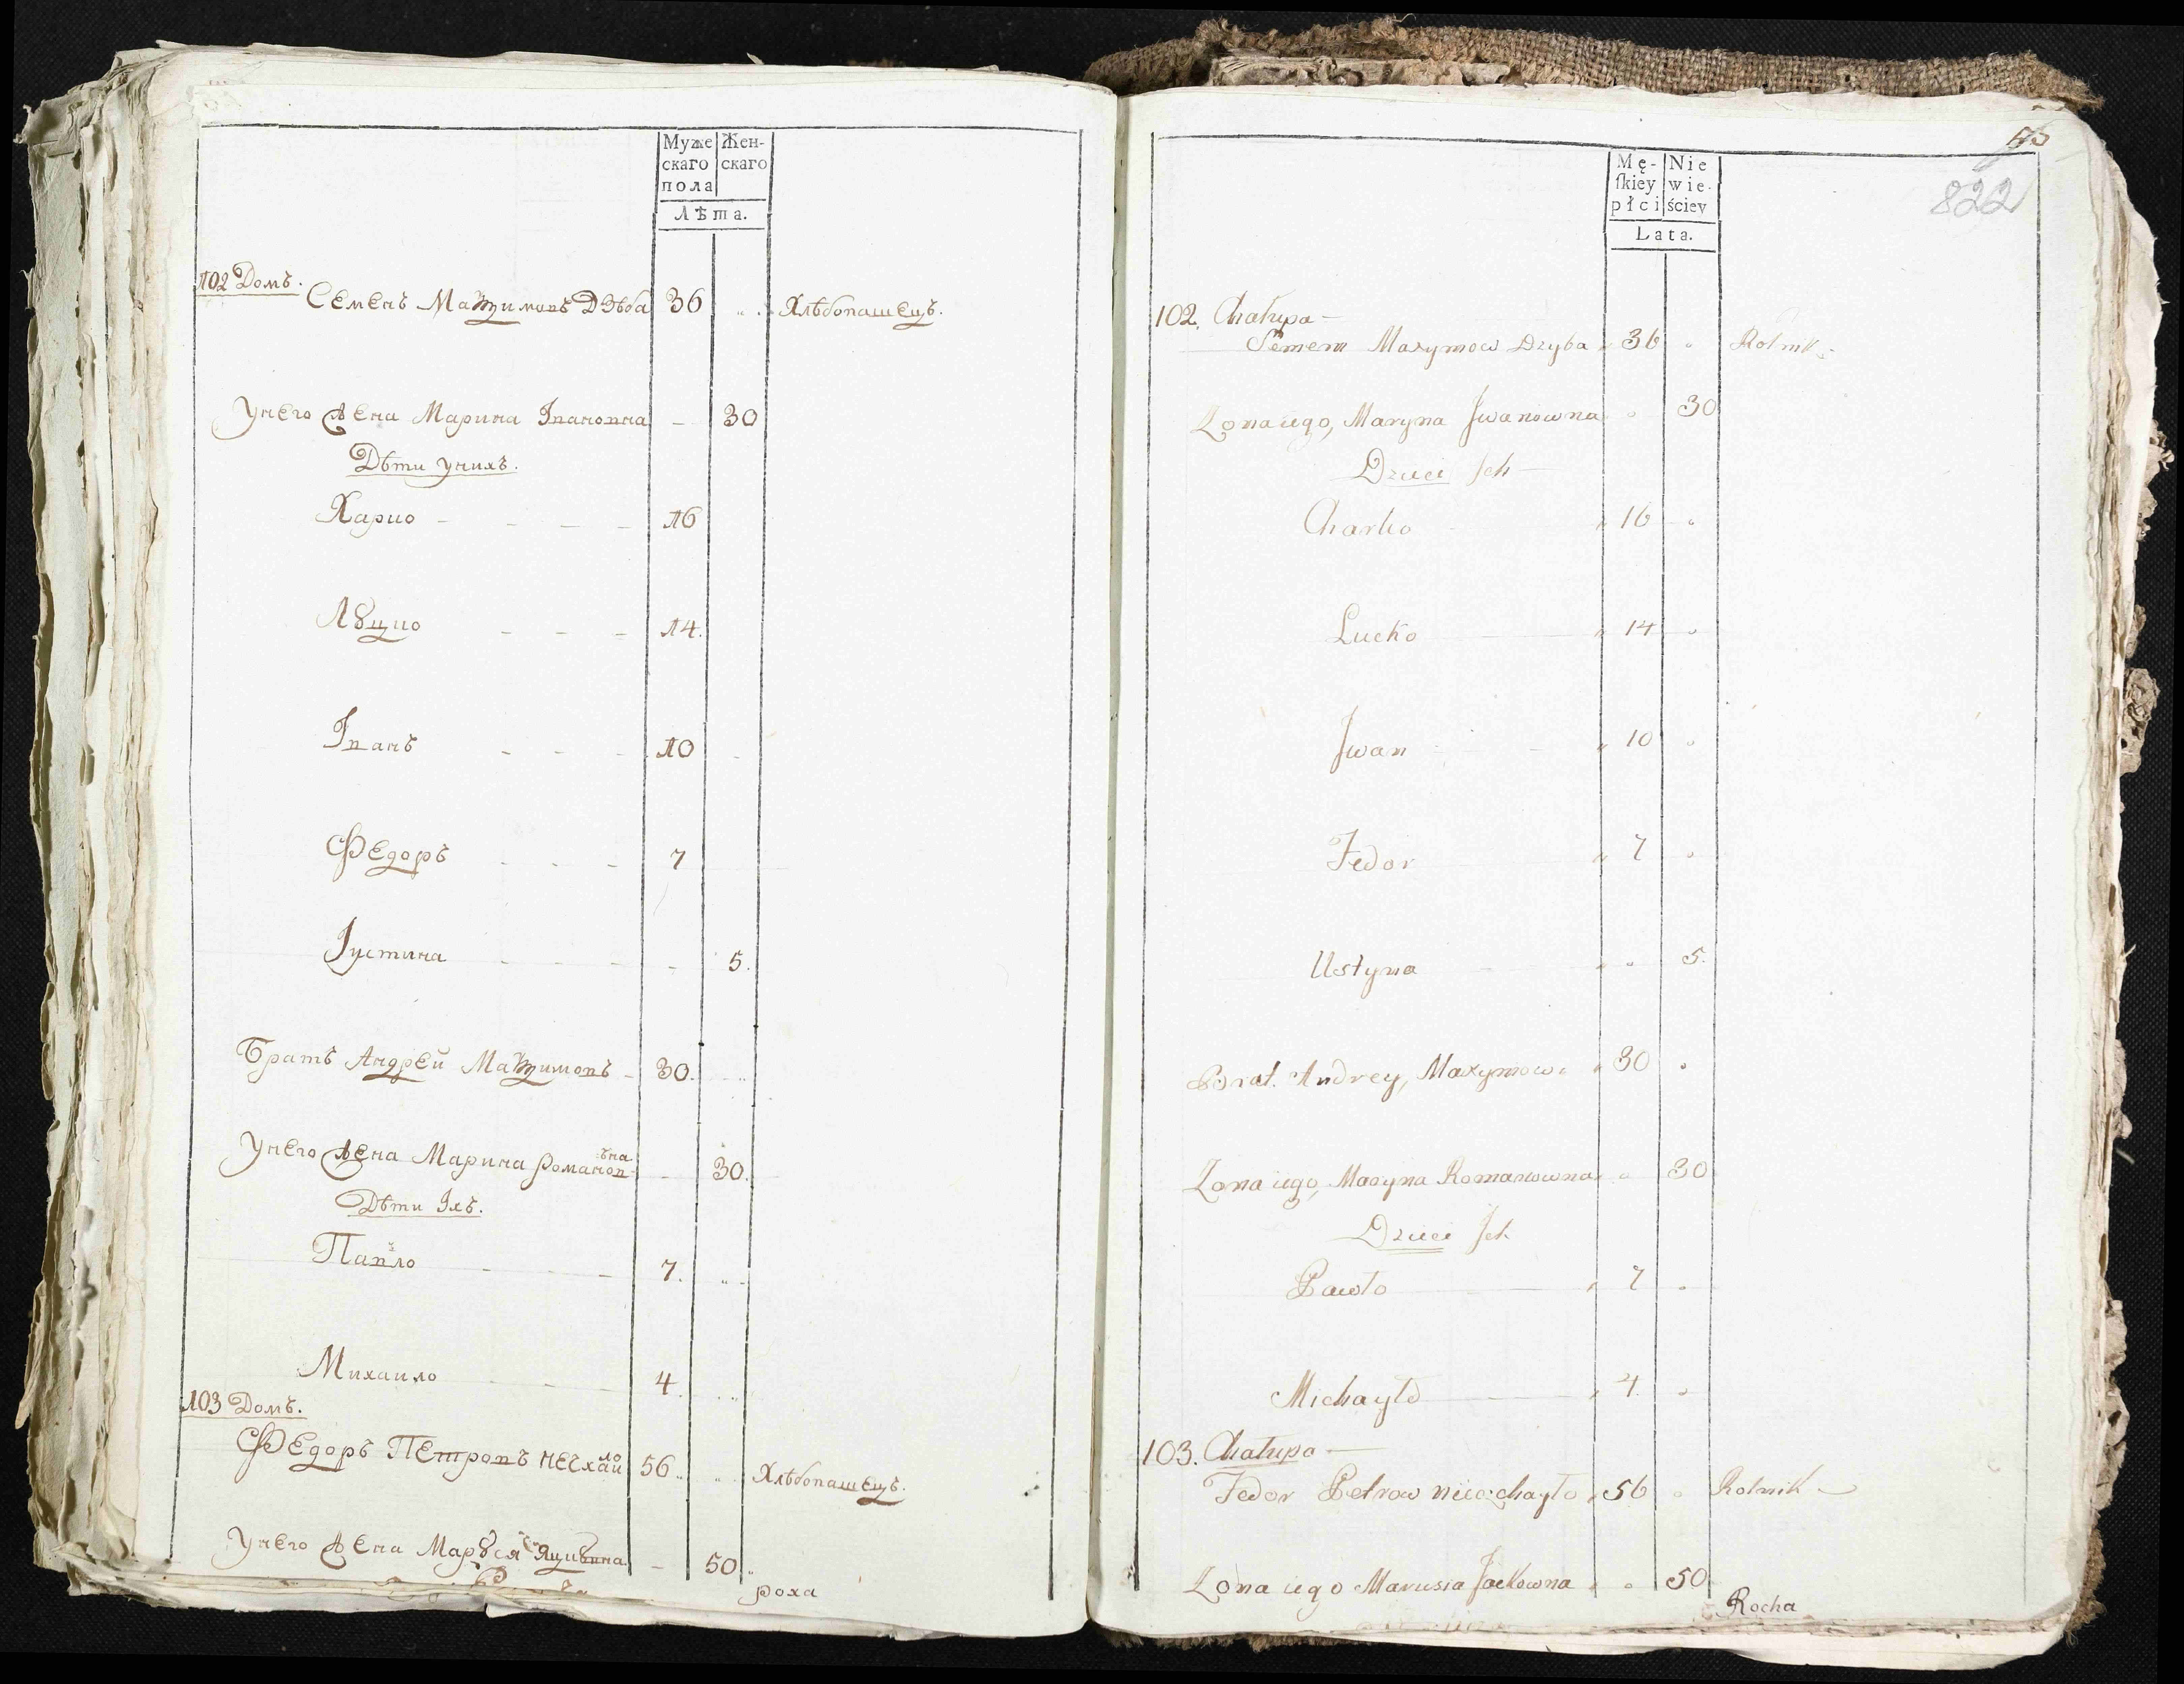 Муже Жен-
скаго скаго
пола
Лѣта.
102 Домъ.
Семенъ Маѯимовъ Дзюба 36 Хлѣбопашецъ.
Унего жена Марина Ївановна 30
Дѣти унихъ.
Харко 16
Лꙋцко 14.
Їванъ 10
Ѳедоръ 7
Їустина 5.
Братъ Андрей Маѯимовъ 30.
Унего жена Марина Романовъна 30.
Дѣти Їхъ.
Павло 7.
Михаило 4
103 Домъ.
Ѳедоръ Петровъ Нечхайло 56 Хлѣбопашецъ.
Унего жена Марꙋся 50
роха
822
Mę- Nie
ſkiey wie-
płci ściey
Lata.
102. Chałupa
Semem Maxymow Dzyba 36 Rolnik
Zona iego, Maryna Jwanowna 30
Dzieci Jch
Charko 16
Lucko 14
Jwan 10
Fedor 7
Ustyna 5.
Brat. Andrey, Maxymow 30
Zona iego, Maryna Romanowna 30
Dzieci Jch
Pawło 7
Michayło 4
103. Chałupa
Fedor Petrow 56 Rolnik
Zona iego Marusia Jackowna 50
Rocha